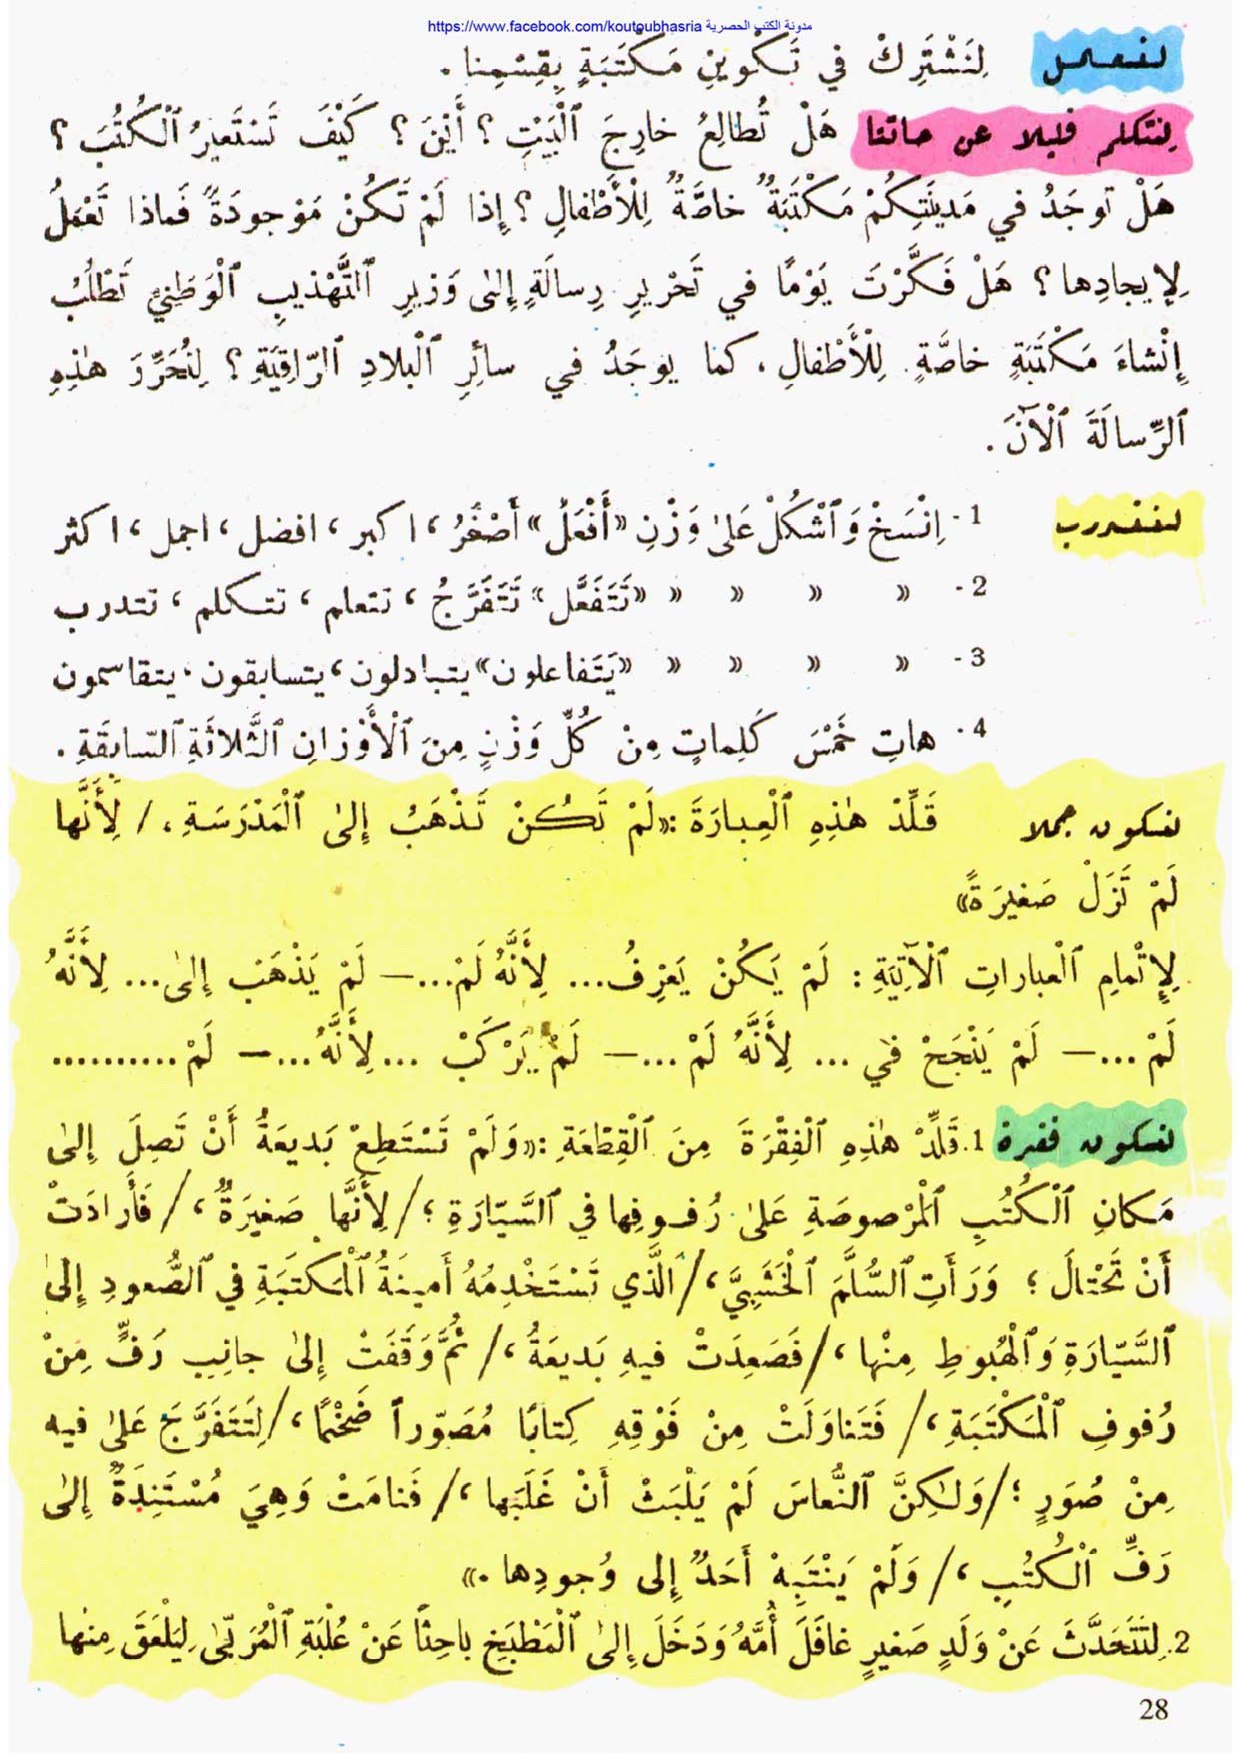 https://www.facebook.com/koutoubhasria مدونة الكتب الحصرية
لنعمل لِنَشْتَرِكْ في تَكْوينِ مَكْتَبَةٍ بِقِسْمِنا .
لِنَتَكلم قليلا عن حياتنا هَلْ تُطالِعُ خارِجَ ٱلْبَيْتِ ؟ أَيْنَ ؟ كَيْفَ تَسْتَعيرُ ٱلْكُتُبَ ؟
هَلْ توجَدُ في مَدينَتِكُمْ مَكْتَبَةٌ خاصَّةٌ لِلْأَطْفالِ ؟ إِذا لَمْ تَكُنْ مَوْجودَةً فَماذا تَعْمَلُ
لِإيجادِها ؟ هَلْ فَكَّرْتَ يَوْمًا في تَحْريرِ رِسالَةٍ إِلىٰ وَزيرِ ٱلتَّهْذيبِ ٱلْوَطَنِيِّ تَطْلُبُ
إِنْشاءَ مَكْتَبَةٍ خاصَّةٍ لِلْأَطْفالِ ، كما يوجَدُ في سائِرِ ٱلْبلادِ ٱلرّاقِيَةِ ؟ لِنُحَرِّرَ هٰذِهِ
ٱلرِّسالَةَ ٱلْآنَ .
لنتدرب 1- اِنْسَخْ وَٱشْكُلْ عَلىٰ وَزْنِ «أَفْعَلُ» أَصْغَرُ ، اكبر ، افضل ، اجمل ، اكثر
2- » » » » «تَتَفَعَّل» تَتَفَرَّجُ ، تتعلم ، تتكلم ، تتدرب
3- » » » » «يَتَفاعلون» يتبادلون ، يتسابقون . يتقاسمون
4. هاتِ خَمْسَ كَلِماتٍ مِنْ كُلِّ وَزْنٍ مِنَ ٱلْأَوْزانِ ٱلثَّلاثَةِ ٱلسّابِقَةِ .
لنكون جملا قَلِّدْ هٰذِهِ ٱلْعِبارَةَ : «لَمْ تَكُنْ تَذْهَبُ إِلىٰ ٱلْمَدْرَسَةِ ، / لِأَنَّها
لَمْ تَزَلْ صَغيرَةً»
لِإِتْمامِ ٱلْعبارات ٱلْآتِيَةِ : لَمْ يَكُنْ يَعْرِفُ... لِأَنَّهُ لَمْ...— لَمْ يَذْهَبْ إِلىٰ... لِأَنَّهُ
لَمْ ...— لَمْ يَنْجَحْ في ... لِأَنَّهُ لَمْ ...— لَمْ يَرْكَبْ ... لِأَنَّهُ...— لَمْ ..........
لنكون فقرة 1. قَلِّدْ هٰذِهِ ٱلْفِقْرَةَ مِنَ ٱلْقِطْعَةِ : «وَلَمْ تَسْتَطِعْ بَديعَةُ أَنْ تَصِلَ إِلىٰ
مَكانِ ٱلْكُتُبِ ٱلْمَرْصوصَةِ عَلىٰ رُفوفِها في ٱلسَّيّارَةِ ؛/ لِأَنَّها صَغيرَةٌ ،/ فَأَرادَتْ
أَنْ تَحْتالَ ؛ وَرَأَتِ ٱلسُّلَّمَ ٱلْخَشَبِيَّ ،/ الَّذي تَسْتَخْدِمُهُ أَمينَةُ ٱلْمَكتَبَةِ في ٱلصُّعودِ إِلىٰ
ٱلسَّيّارَةِ وَٱلْهُبوطِ مِنْها ،/ فَصَعِدَتْ فيهِ بَديعَةُ ،/ ثُمَّ وَقَفَتْ إِلىٰ جانِبِ رَفٍّ مِنْ
رُفوفِ ٱلْمَكْتَبَةِ ،/ فَتَناوَلَتْ مِنْ فَوْقِهِ كِتابًا مُصَوّراً ضَخْمًا ،/ لِتَتَفَرَّجَ عَلىٰ فيه
مِنْ صُوَرٍ ؛/ وَلٰكِنَّ ٱلنُّعاسَ لَمْ يَلْبَثْ أَنْ غَلَبَها ،/ فَنامَتْ وَهِيَ مُسْتَنِدَةٌ إِلىٰ
رَفِّ ٱلْكُتُبِ ،/ وَلَمْ يَنْتَبِهْ أَحَدٌ إِلى وُجودِها .»
2. لِنَتَحَدَّثَ عَنْ وَلَدٍ صَغيرٍ غافَلَ أُمَّهُ وَدَخَلَ إِلىٰ ٱلْمَطْبَخِ باحِثاً عَنْ عُلْبَةِ ٱلْمُرَبّىٰ لِيَلْعَقَ مِنْها
28